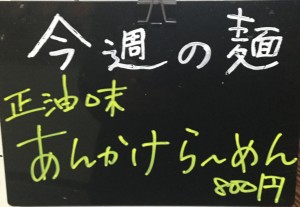 今週の麺
正油味
あんかけら〜めん
800円